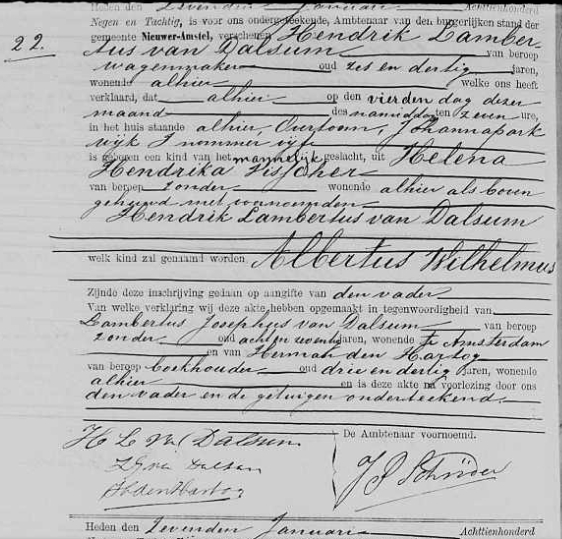 Heden den Zevenden Januari Achttienhonderd
Negen en Tachtig, is voor ons ondergeteekende, Ambtenaar van den burgerlijken stand der
22. gemeente Nieuwer-Amstel, verschenen Hendrik Lamber-
tus van Dalsum van beroep
wagenmaker oud zes en dertig jaren,
wonende alhier welke ons heeft
verklaard, dat alhier op den vierden dag dezer
maand des namiddag ten zeven ure,
in het huis staande alhier, Overtoom, Johannapark
wijk J nommer vijf
is geboren een kind van het mannelijk geslacht, uit Helena
Hendrika Visscher
van beroep zonder wonende alhier als boven
gehuwd met voornoemden
Hendrik Lambertus van Dalsum
welk kind zal genaamd worden Albertus Wilhelmus
Zijnde deze inschrijving gedaan op aangifte van den vader
Van welke verklaring wij deze akte hebben opgemaakt in tegenwoordigheid van
Lambertus Josephus van Dalsum van beroep
zonder oud acht en zeventig jaren, wonende Te Amsterdam
en van Herman den Hartog
van beroep boekhouder oud drie en dertig jaren, wonende
alhier en is deze akte na voorlezing door ons
den vader en de getuigen onderteekend.
H L van Dalsum De Ambtenaar voornoemd.
van Dalsum
H den Hartog J P Schröder
Heden den Zevenden Januari Achttienhonderd